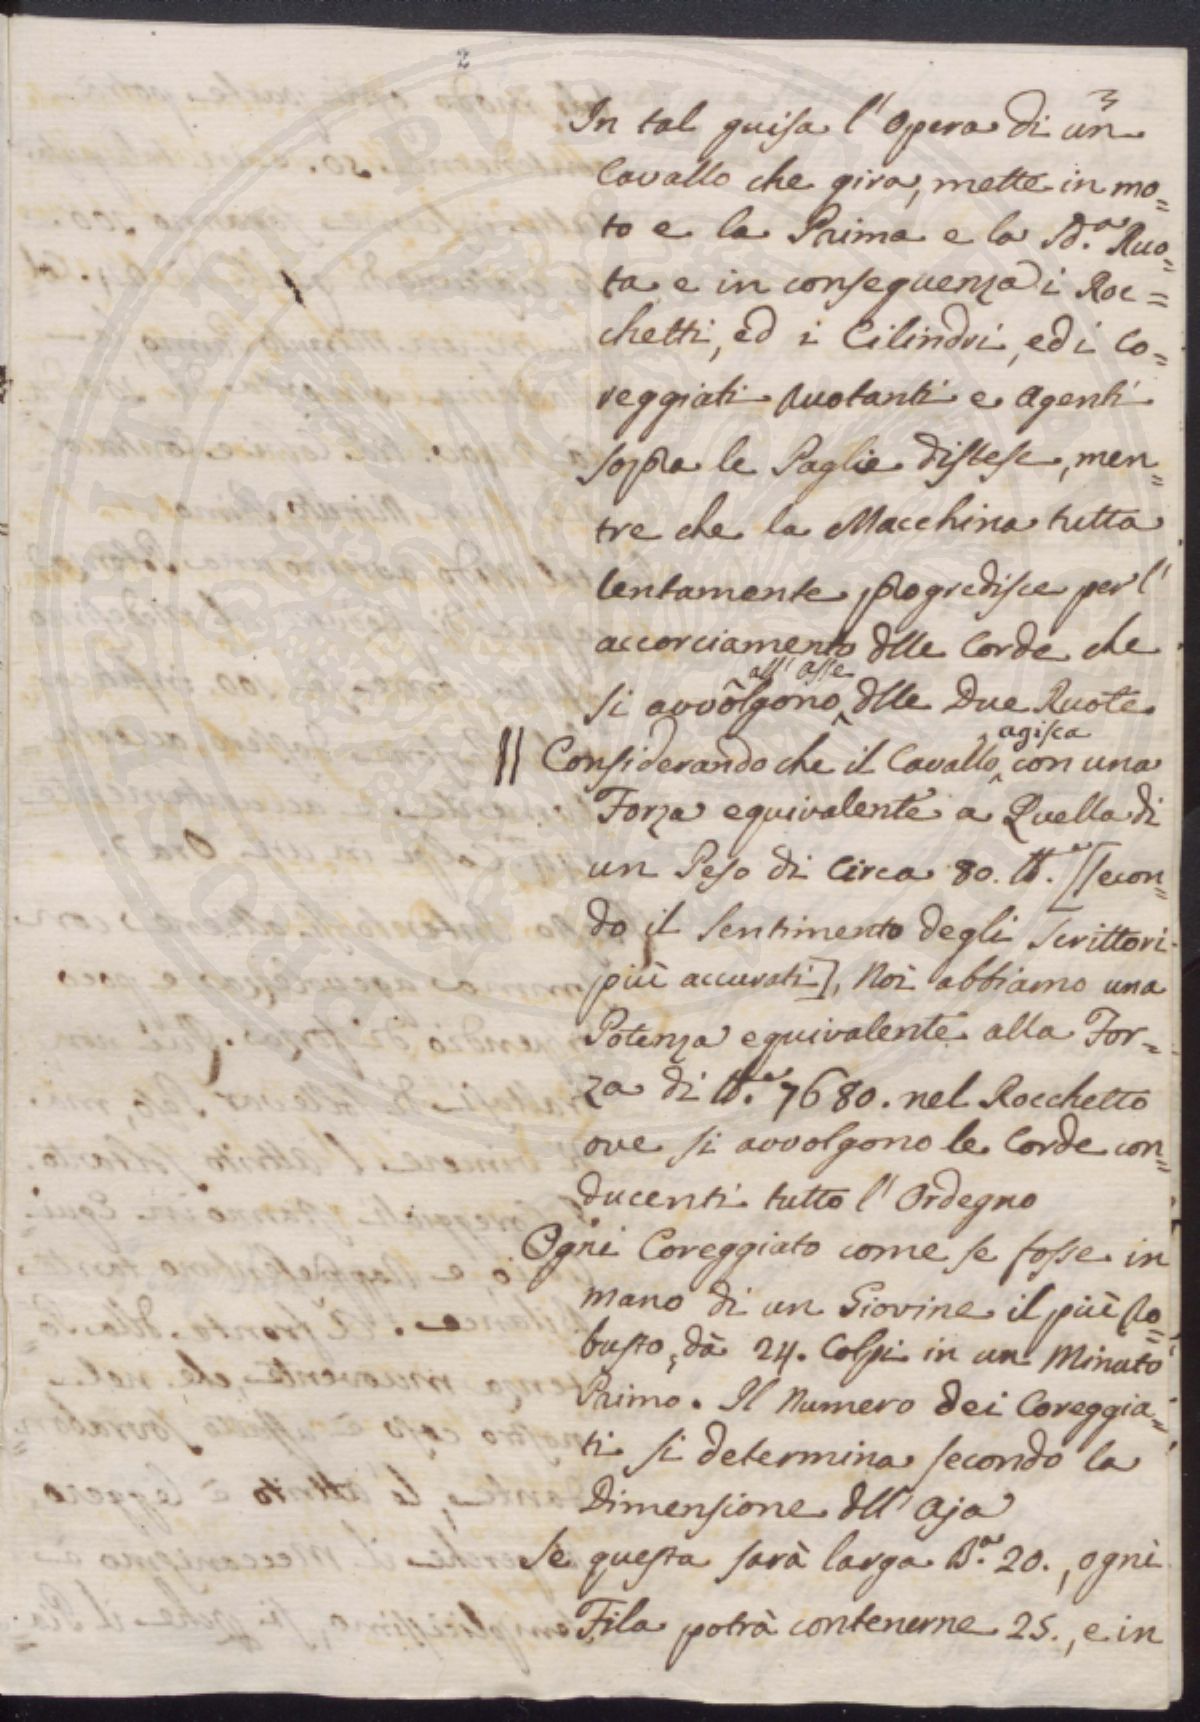 2
3
In tal guisa l'Opera di un
Cavallo che gira, mette in mo=
to e la Prima e la Sd.a Ruo=
ta e in conseguenza i Roc=
chetti, ed i Cilindri, ed i Co=
reggiati Ruotanti e Agenti
sopra le Paglie distese, men=
tre che la Macchina tutta
lentamente progredisce per l'
accorciamento dlle Corde che
all'asse
si avvolgono dlle Due Ruote
agisca
|| Considerando che il Cavallo con una
Forza equivalente a Quella di
un Peso di Circa 80. lb.a [secon=
do il sentimento degli Scrittori
più accurati], Noi abbiamo una
Potenza equivalente alla For=
za di lb.a 7680. nel Rocchetto
ove si avvolgono le Corde con=
ducenti tutto l'Ordegno
Ogni Coreggiato come se fosse in
mano di un Giovine il più Ro=
busto, dà 24. Colpi in un Minuto
Primo. Il Numero dei Coreggia=
ti si determina secondo la
Dimensione dll'Aja
Se questa sarà larga B.a 20., ogni
Fila potrà contenerne 25., e in